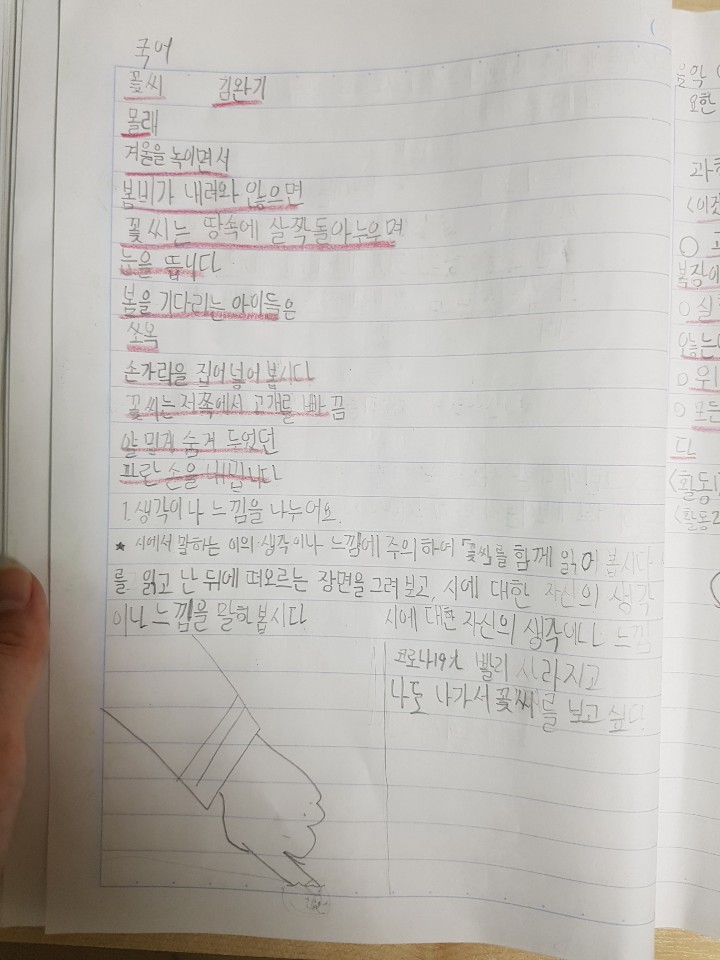 국어
꽃씨 김완기
몰래
겨울을 녹이면서
봄비가 내려와 앉으면
꽃씨는 땅속에 살짝 돌아누우며
눈을 뜹니다
봄을 기다리는 아이들은
쏘옥
손가락을 집어넣어 봅시다
꽃씨는 저쪽에서 고개를 빠끔
얄밉게 숨겨 두었던
파란 손을 내밉니다
1. 생각이나 느낌을 나누어요.
★ 시에서 말하는 이의 생각이나 느낌에 주의하여 「꽃씨」를 함께 읽어 봅시다
를 읽고 난 뒤에 떠오르는 장면을 그려 보고, 시에 대한 자신의 생각
이나 느낌을 말해 봅시다. 시에 대한 자신의 생각이나 느낌
코로나19가 빨리 사라지고
나도 나가서 꽃씨를 보고 싶다.
음악
요한
과학
복장
○ 실
않는
○ 위
○ 모든
다
<활동1
<활동2